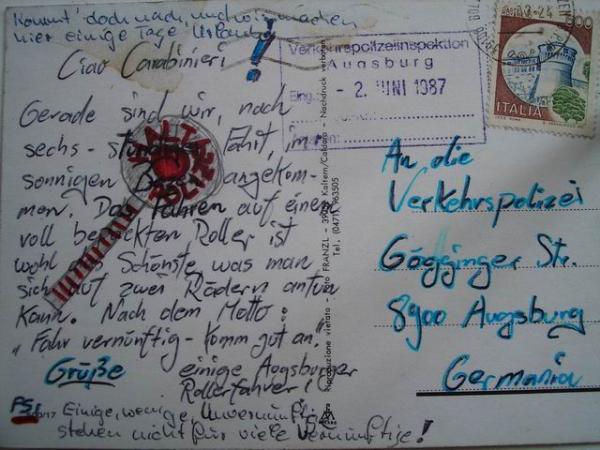 Kommt' doch nach, und wir machen
hier einige Tage Urlaub!
Ciao Carabinieri!
Gerade sind wir, nach
sechs-stündiger Fahrt, im
sonnigen angekom-
men. Das Fahren auf einem
voll bepackten Roller ist
wohl das Schönste was man
sich auf zwei Rädern antun
kann. Nach dem Motto:
"Fahr vernünftig - Komm gut an."
Grüße einige Augsburger
Rollerfahrer!
PS: Einige, wenige, Unvernünft.
stehen nicht für viele Vernünftige!
HALT
POLIZEI
Verkehrspolizeiinspektion
Augsburg
Eing.:
- 2. JUNI 1987
ITALIA
FRANZL - Kaltern/Caldaro - Nachdruck verboten
Riproduzione vietata
Tel. (0471) 963505
An die
Verkehrspolizei
Gögginger Str.
8900 Augsburg
Germania